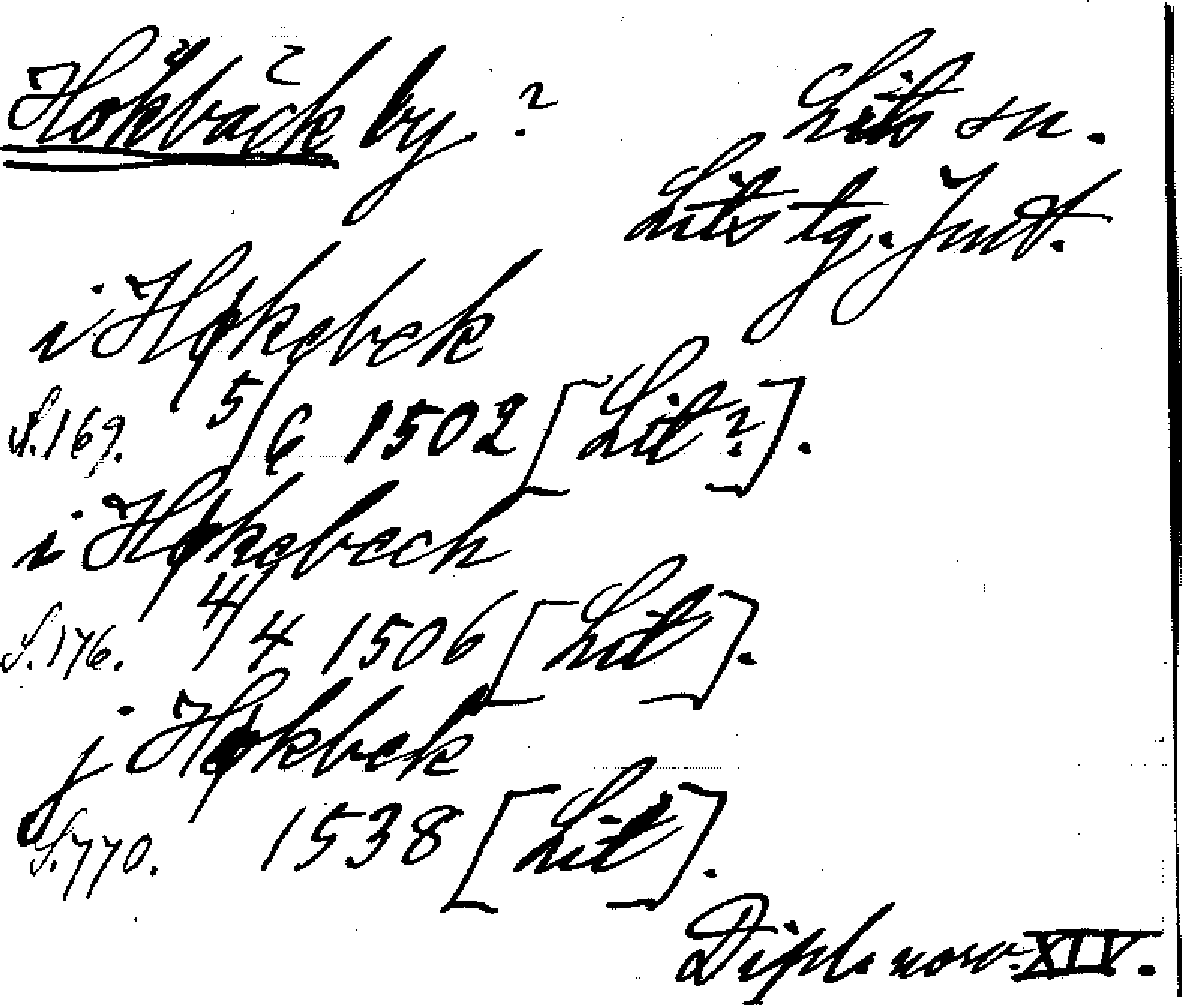 Hökbäck by?
Lits sn.
Lits tg. Jmtl.
i Høkebek
S.169. 5/6 1502 [Lit?].
i Høkebech
S.176. 4/4 1506 [Lit].
j Høkbek
S.770. 1538 [Lit].
Dipl. norv. XIV.